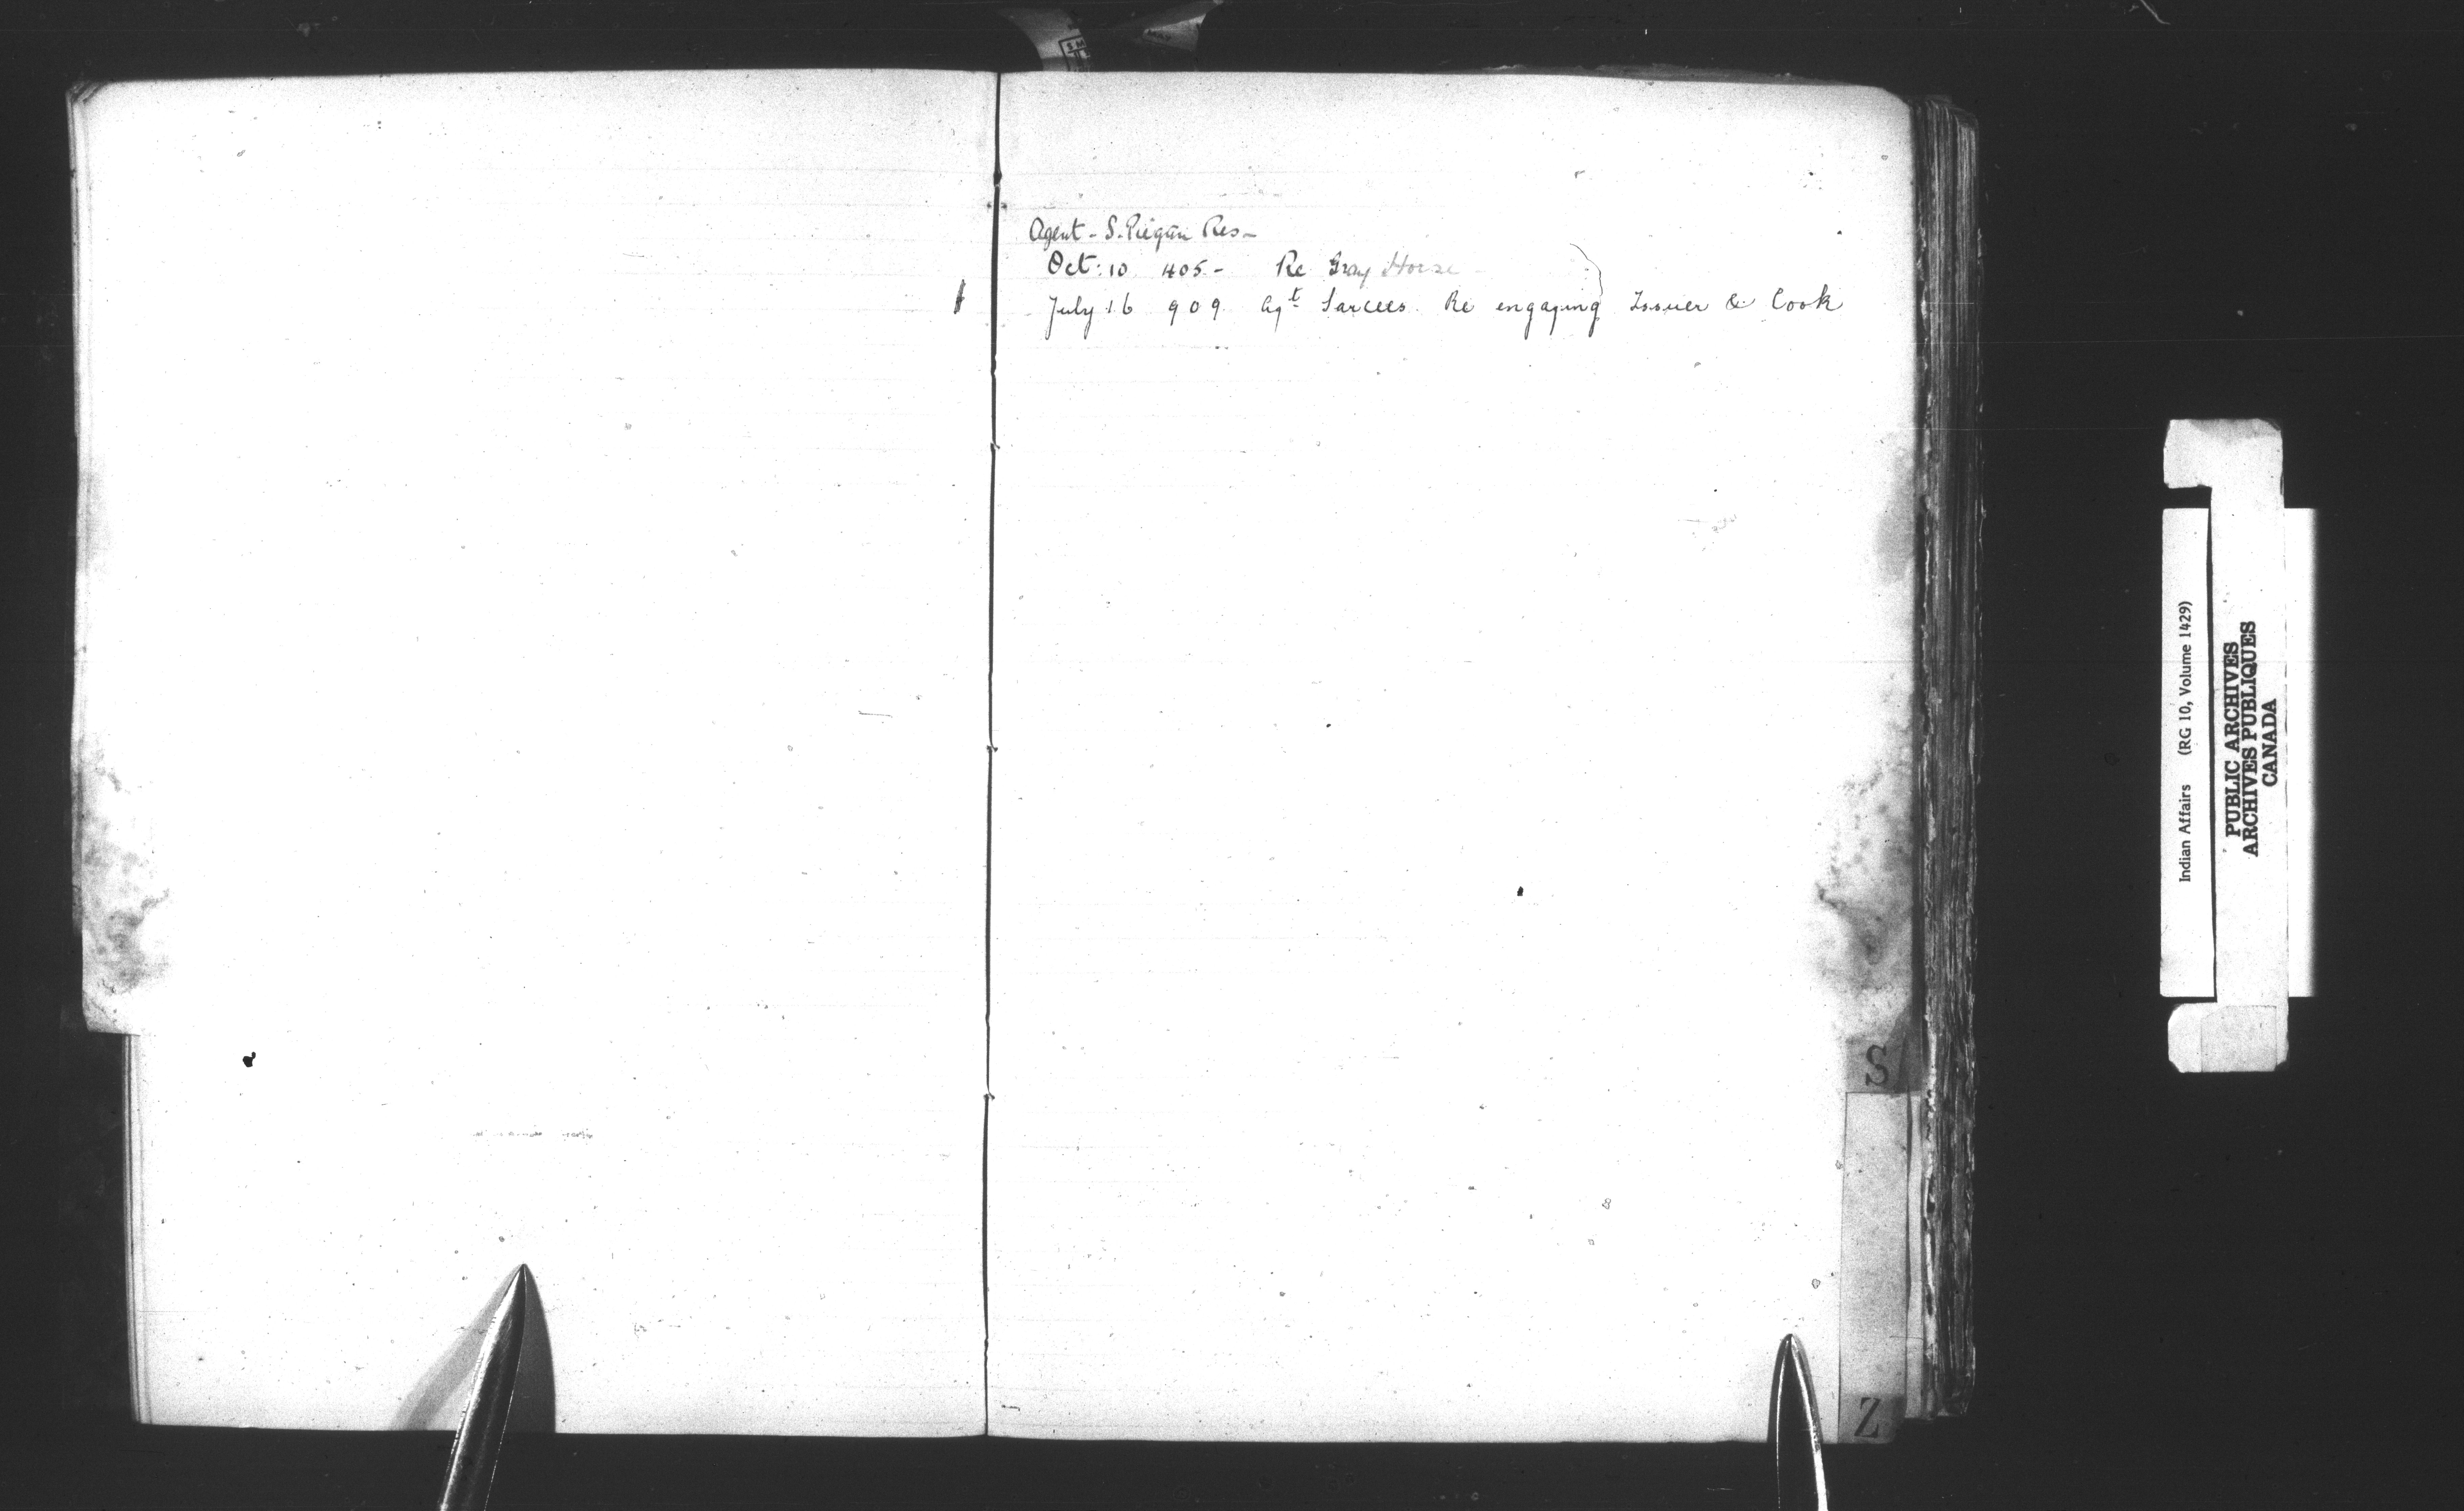 Agent - S. Piegan Res -
Oct. 10 405 - Re Gray Horse -
July 16 909 Agt Sarcees. Re engaging Issuer & Cook
S
Z
Indian Affairs (RG 10, Volume 1429)
PUBLIC ARCHIVES
ARCHIVES PUBLIQUES
CANADA